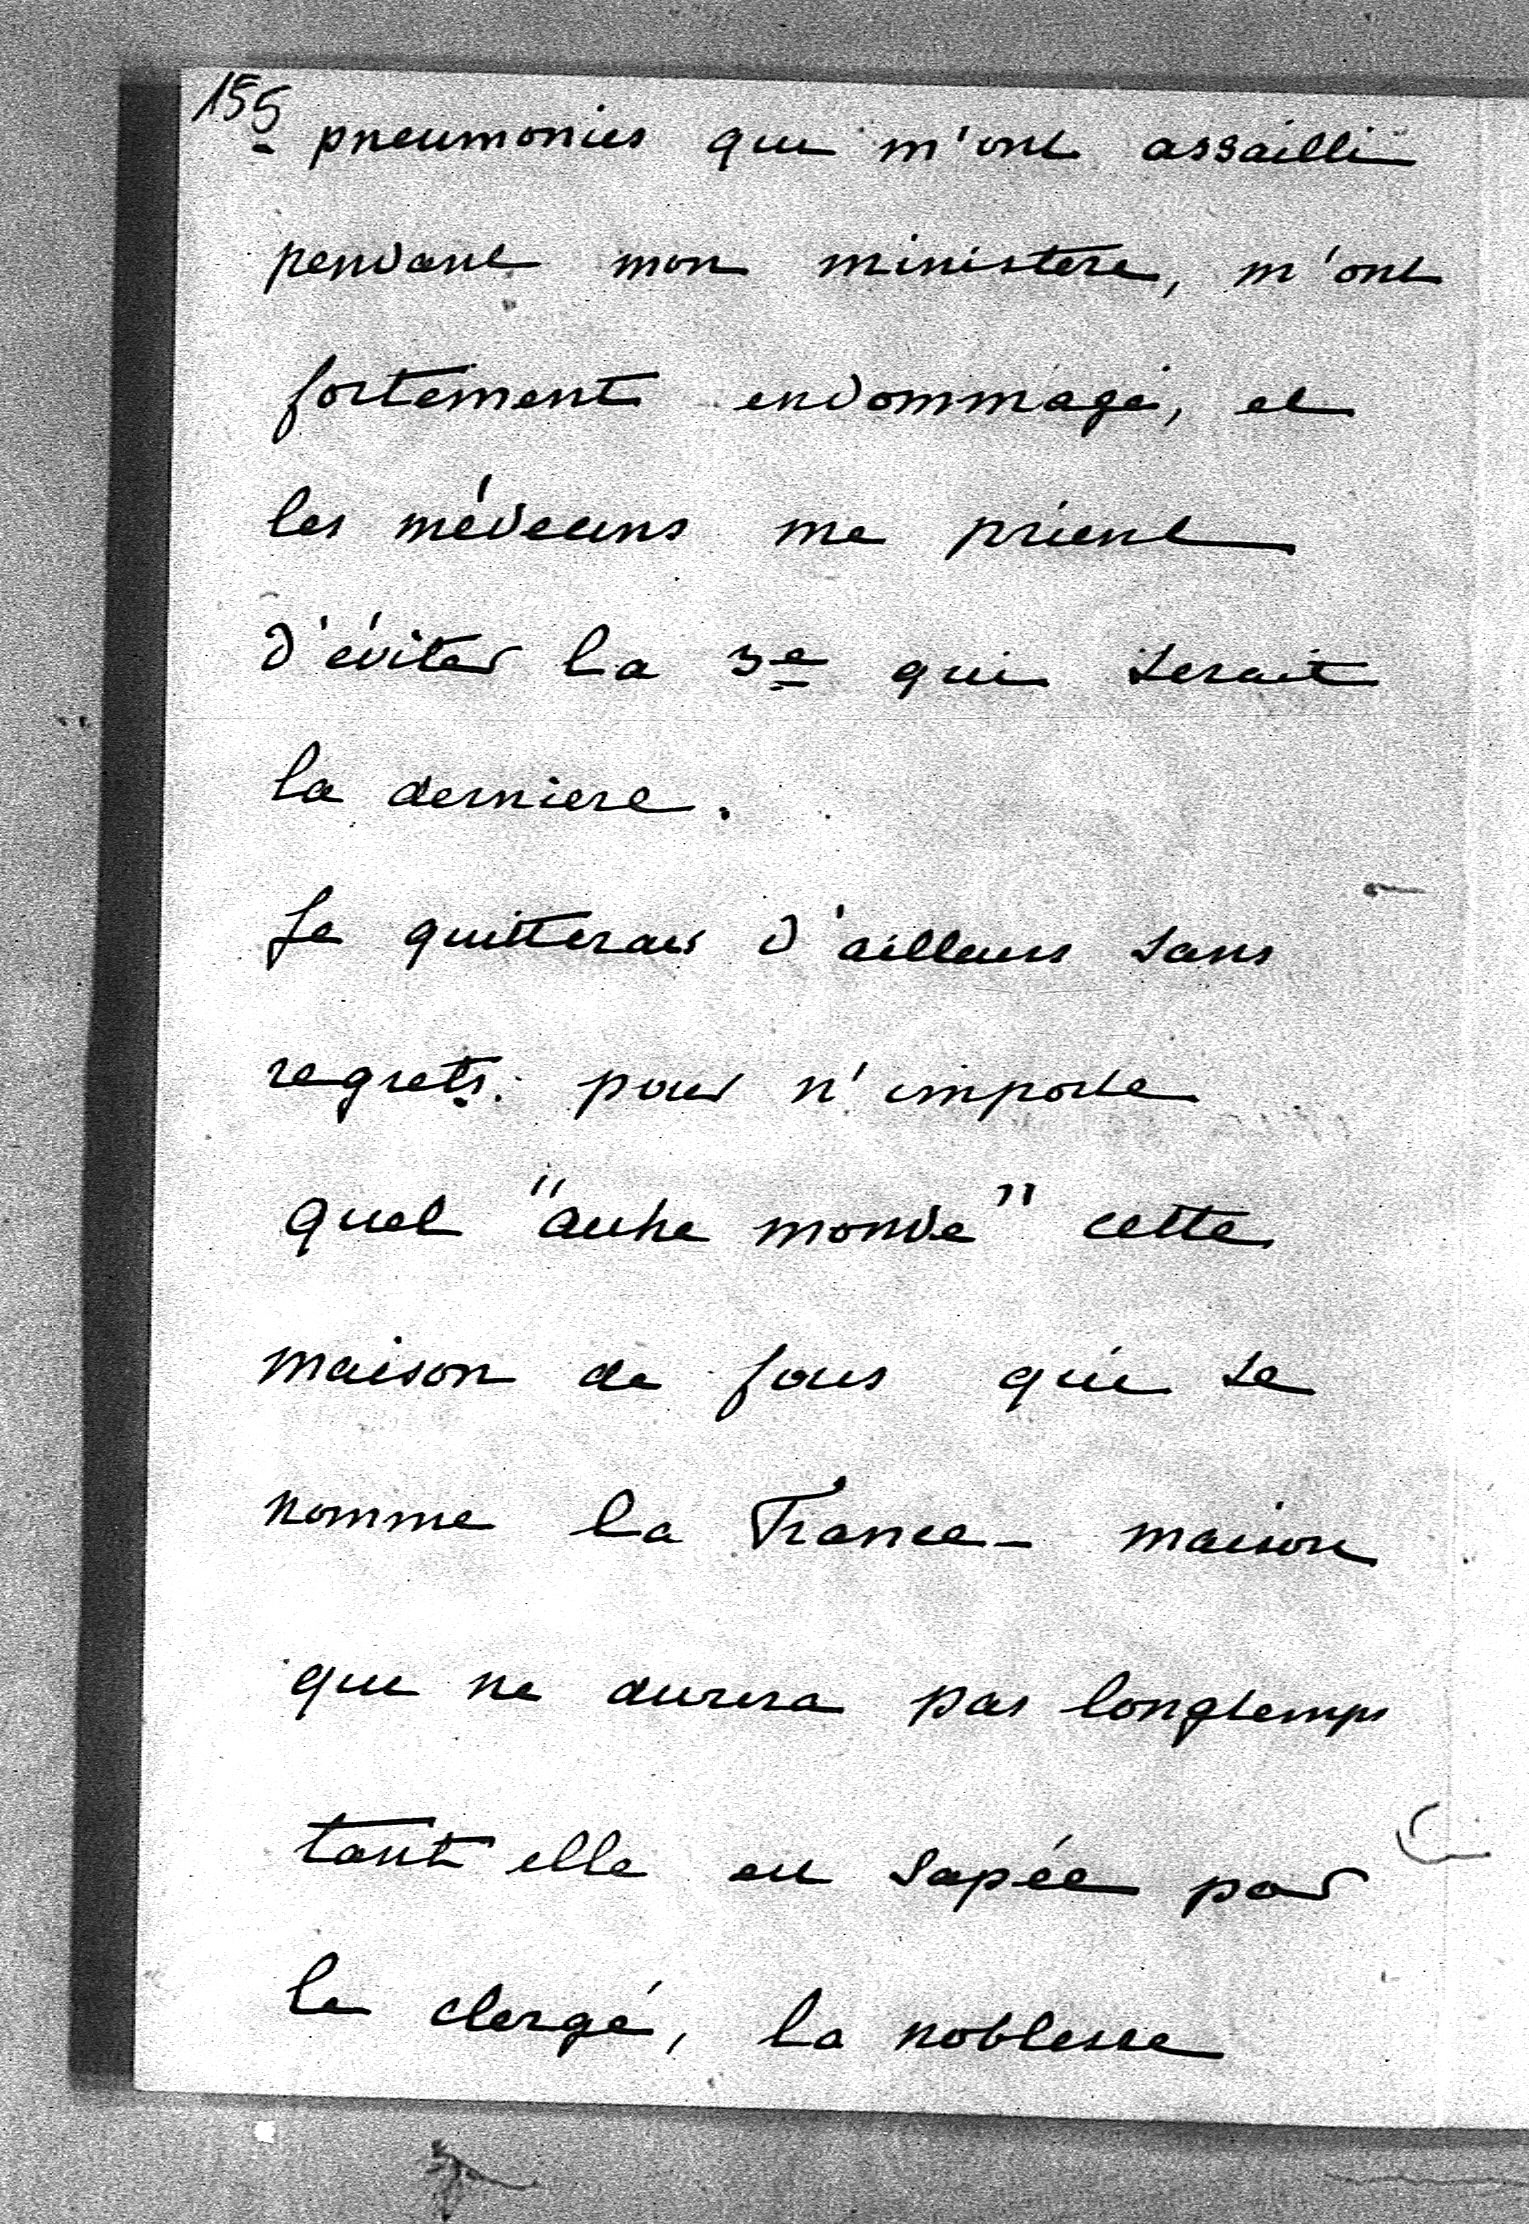 155
pneumonies qui m'ont assailli
pendant mon ministère, m'ont
fortement endommagé, et
les médecins me prient
d'éviter la 3e qui serait
la dernière.
Je quitterais d'ailleurs sans
regrets pour n'importe
quel "autre monde" cette
maison de fous qui se
nomme la France - maison
qui ne durera pas longtemps
tant elle est sapée par
le clergé, la noblesse